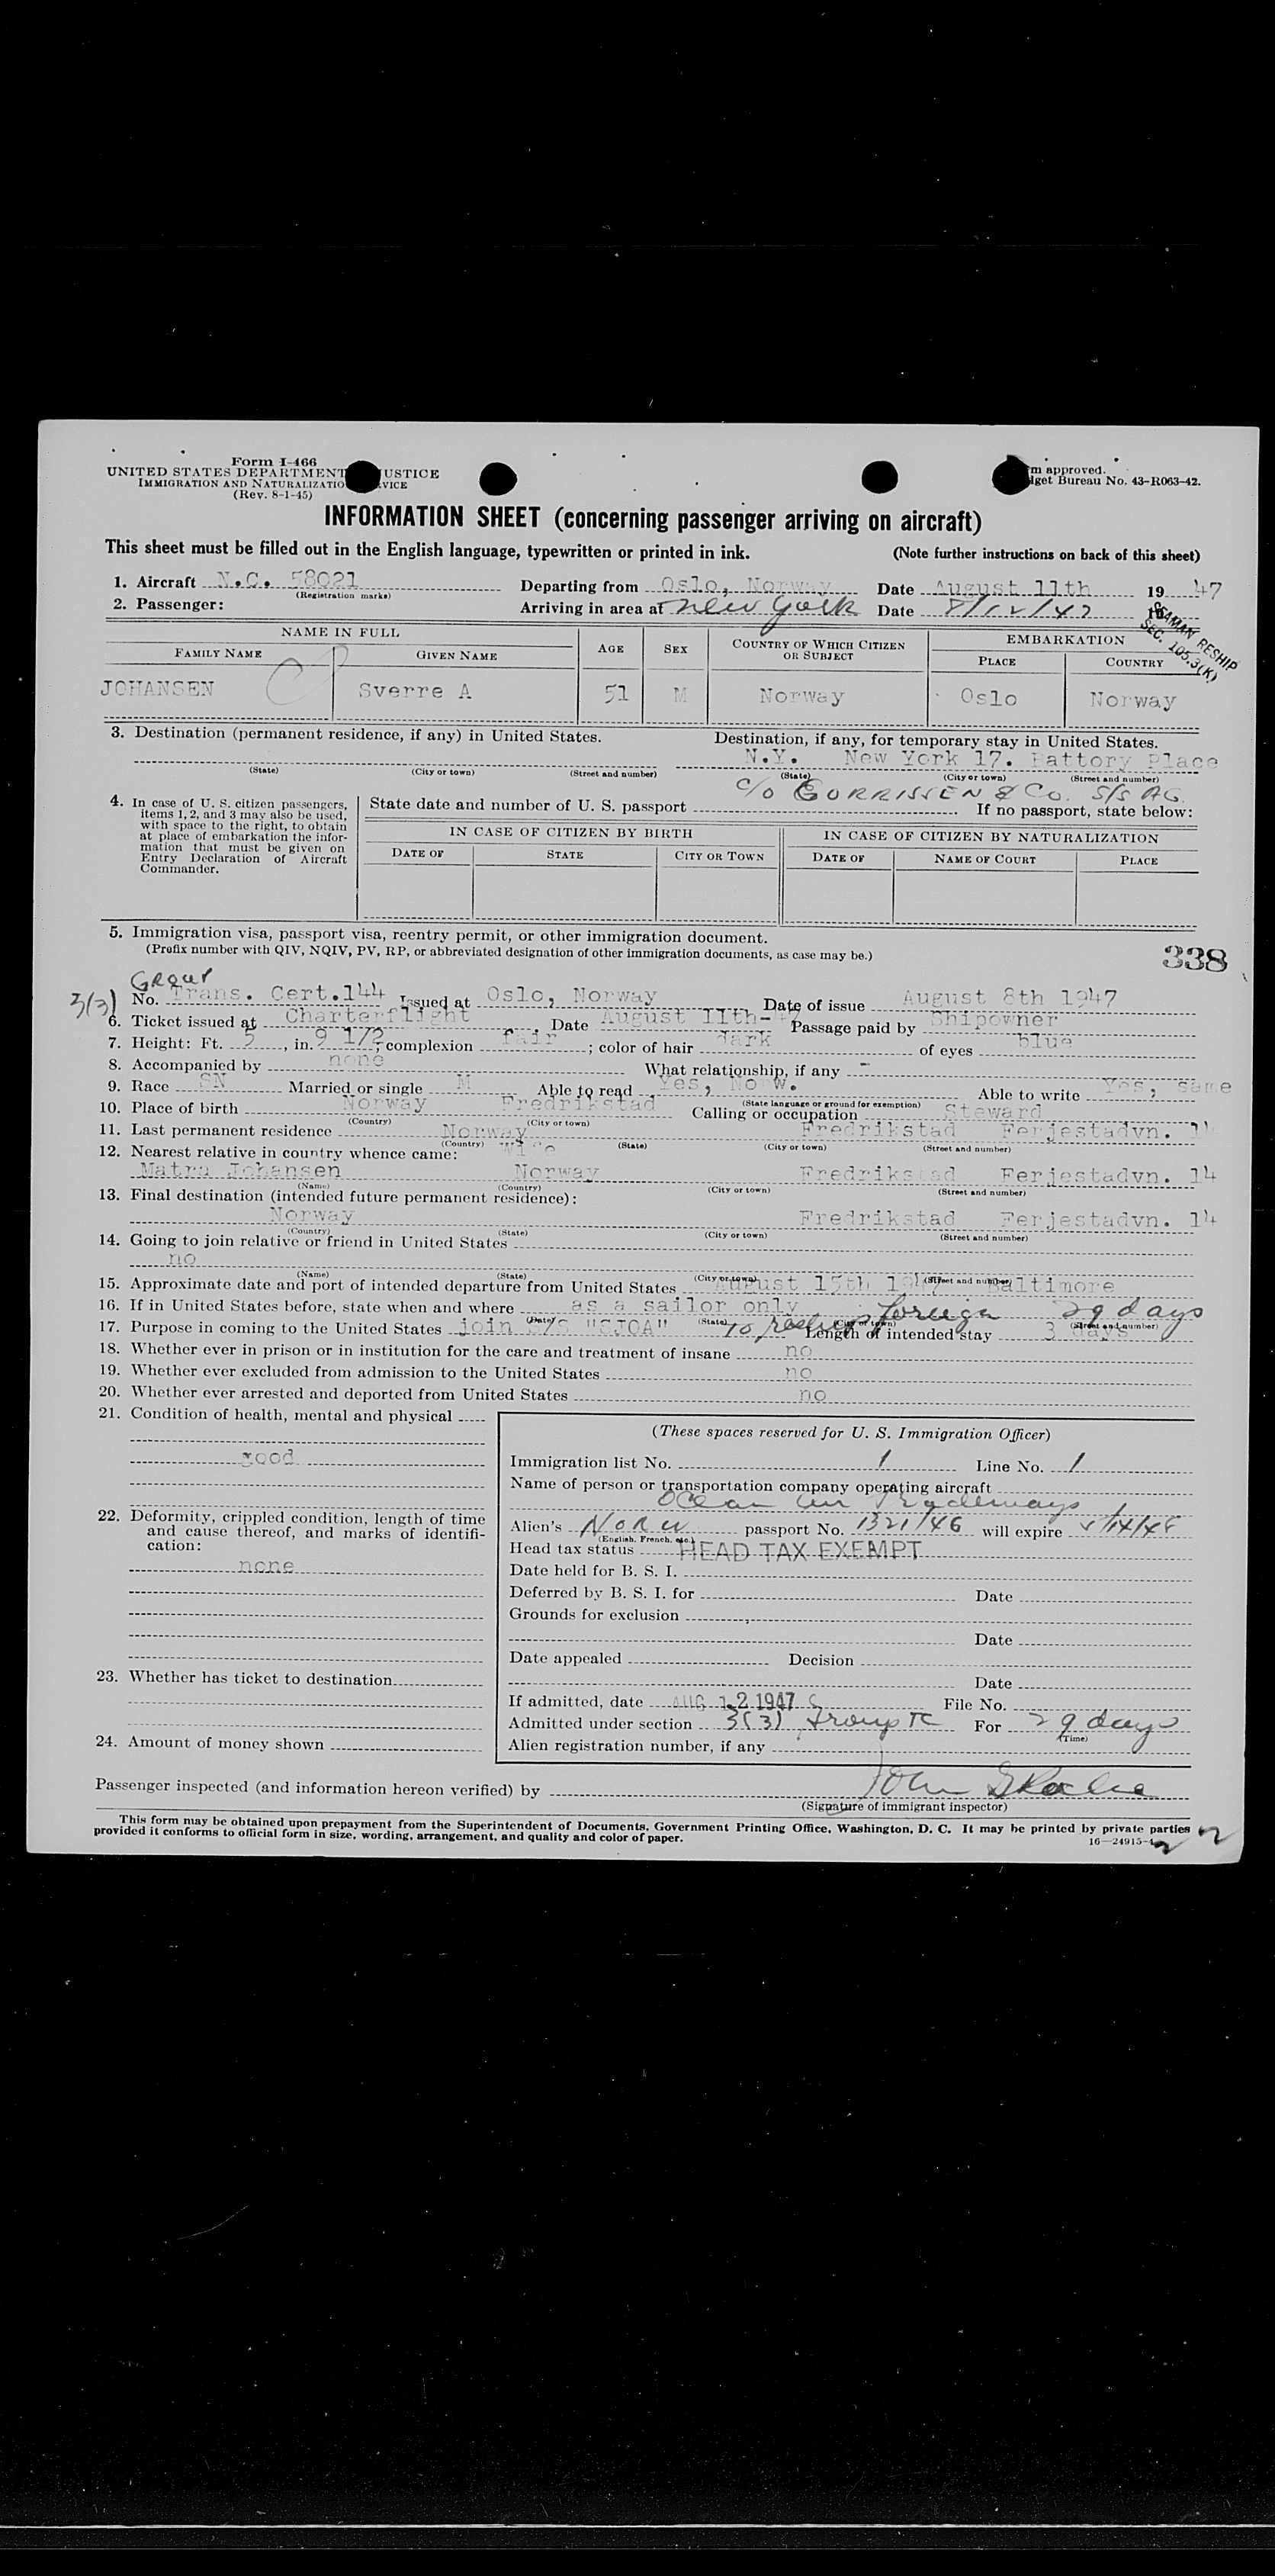 Form I-466
UNITED STATES DEPARTMENT USTICE
IMMIGRATION AND NATURALIZATIO VICE
(Rev. 8-1-45)
m approved.
get Bureau No. 43-R063-42.
INFORMATION SHEET (concerning passenger arriving on aircraft)
This sheet must be filled out in the English language, typewritten or printed in ink. (Note further instructions on back of this sheet)
1. Aircraft N.C. 58021 Departing from Oslo, Norway Date August 11th 19 47
(Registration marks)
2. Passenger: Arriving in area at New York Date 8/12/47
SEAMAN RESHIP
SEC. 105.3(K)
NAME IN FULL AGE SEX COUNTRY OF WHICH CITIZEN OR SUBJECT EMBARKATION
FAMILY NAME GIVEN NAME PLACE COUNTRY
JOHANSEN Sverre A 51 M Norway Oslo Norway
3. Destination (permanent residence, if any) in United States. Destination, if any, for temporary stay in United States.
N.Y. New York 17. Battory Place
(State) (City or town) (Street and number) (State) (City or town) (Street and number)
c/o GORRISSEN & Co. S/S AG.
4. In case of U. S. citizen passengers, items 1, 2, and 3 may also be used, with space to the right, to obtain at place of embarkation the information that must be given on Entry Declaration of Aircraft Commander.
State date and number of U. S. passport If no passport, state below:
IN CASE OF CITIZEN BY BIRTH IN CASE OF CITIZEN BY NATURALIZATION
DATE OF STATE CITY OR TOWN DATE OF NAME OF COURT PLACE
5. Immigration visa, passport visa, reentry permit, or other immigration document.
(Prefix number with QIV, NQIV, PV, RP, or abbreviated designation of other immigration documents, as case may be.)
338
Group
3(3) No. Trans. Cert.144 Issued at Oslo, Norway Date of issue August 8th 1947
6. Ticket issued at Charterflight, Date August 11th-47 Passage paid by Shipowner
7. Height: Ft. 5, in. 9 1/2; complexion fair; color of hair dark of eyes blue
8. Accompanied by none What relationship, if any -
9. Race SN Married or single M Able to read Yes, Norw. Able to write Yes, same
(State language or ground for exemption)
10. Place of birth Norway Fredrikstad Calling or occupation Steward
(Country) (City or town)
11. Last permanent residence Norway Fredrikstad Ferjestadvn. 14
(Country) (State) (City or town) (Street and number)
12. Nearest relative in country whence came: wife
Matra Johansen Norway Fredrikstad Ferjestadvn. 14
(Name) (Country) (City or town) (Street and number)
13. Final destination (intended future permanent residence):
Norway Fredrikstad Ferjestadvn. 14
(Country) (State) (City or town) (Street and number)
14. Going to join relative or friend in United States
no
(Name) (State) (City or town) (Street and number)
15. Approximate date and port of intended departure from United States August 15th 1947 Baltimore
16. If in United States before, state when and where as a sailor only
(Date) (State) (City or town) (Street and number)
17. Purpose in coming to the United States join S/S "SJOA" to reship foreign Length of intended stay 3 days 29 days
18. Whether ever in prison or in institution for the care and treatment of insane no
19. Whether ever excluded from admission to the United States no
20. Whether ever arrested and deported from United States no
21. Condition of health, mental and physical
good
22. Deformity, crippled condition, length of time and cause thereof, and marks of identification:
none
23. Whether has ticket to destination
24. Amount of money shown
(These spaces reserved for U. S. Immigration Officer)
Immigration list No. 1 Line No. 1
Name of person or transportation company operating aircraft
Ocean Air Tradeways
Alien's Norw passport No. 1321/46 will expire
(English, French, etc.)
Head tax status HEAD TAX EXEMPT
Date held for B. S. I.
Deferred by B. S. I. for Date
Grounds for exclusion
Date
Date appealed Decision
Date
If admitted, date AUG 12 1947 File No.
Admitted under section 3(3) Group TC For 29 days
(Time)
Alien registration number, if any
Passenger inspected (and information hereon verified) by
(Signature of immigrant inspector)
This form may be obtained upon prepayment from the Superintendent of Documents, Government Printing Office, Washington, D. C. It may be printed by private parties
provided it conforms to official form in size, wording, arrangement, and quality and color of paper.
16—24915-1